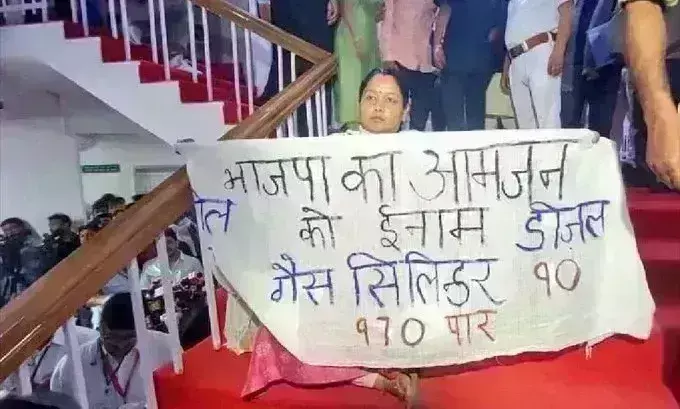 भाजपा का आमजन
को ईनाम डीजल
गैस सिलिडर १०
१७० पार